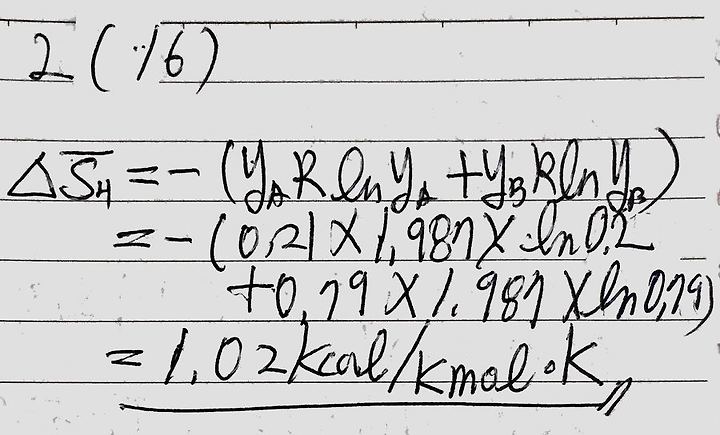 2 (16)
ΔS̅₄ = -(y_A R ln y_A + y_B R ln y_B)
= -(0.21 × 1.987 × ln 0.2
+0.79 × 1.987 × ln 0.79)
= 1.02 kcal/kmol·K